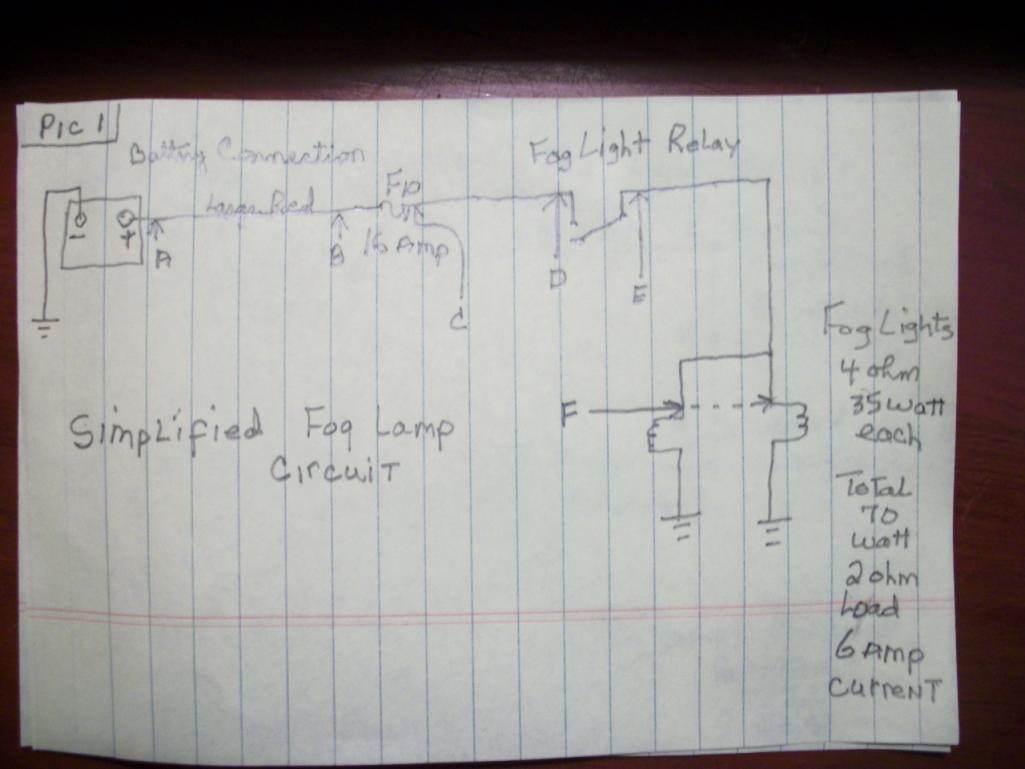 Pic 1
Battery Connection
Fog Light Relay
Large Red
F10
15 Amp
-
+
A
B
C
D
E
F
Simplified Fog Lamp
Circuit
Fog Lights
4 ohm
35 watt
each
Total
70
watt
2 ohm
Load
6 Amp
Current